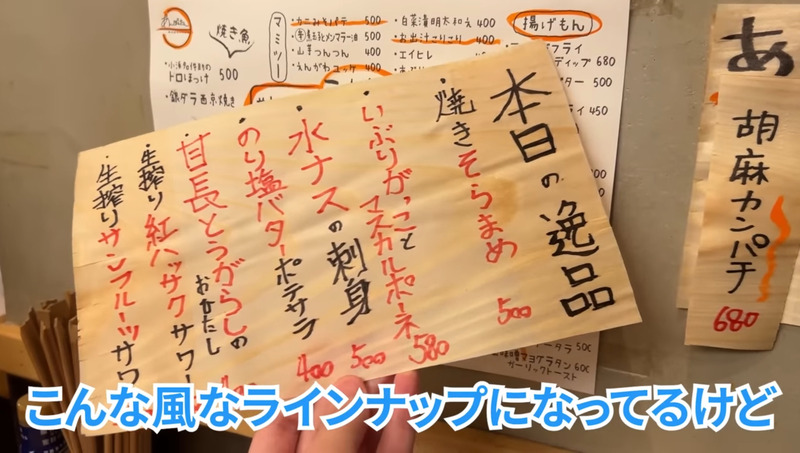 本日の逸品
・焼きそらまめ 500
・いぶりがっことマスカルポーネ 580
・水ナスの刺身 500
・のり塩バターポテサラ 400
・甘長とうがらしのおひたし
・生搾り紅ハッサクサワー
・生搾りサンフルーツサワ
焼き魚
トロほっけ 500
・銀ダラ西京焼き
・カニみそパテ 500
・山芋つんつん 400
・えんがわユッケ
・白菜漬明太和え 400
・お出汁こりこり 400
・エイヒレ
揚げもん
フライ
ディップ 680
500
450
ガーリックトースト
あ
胡麻カンパチ
680
こんな風なラインナップになってるけど